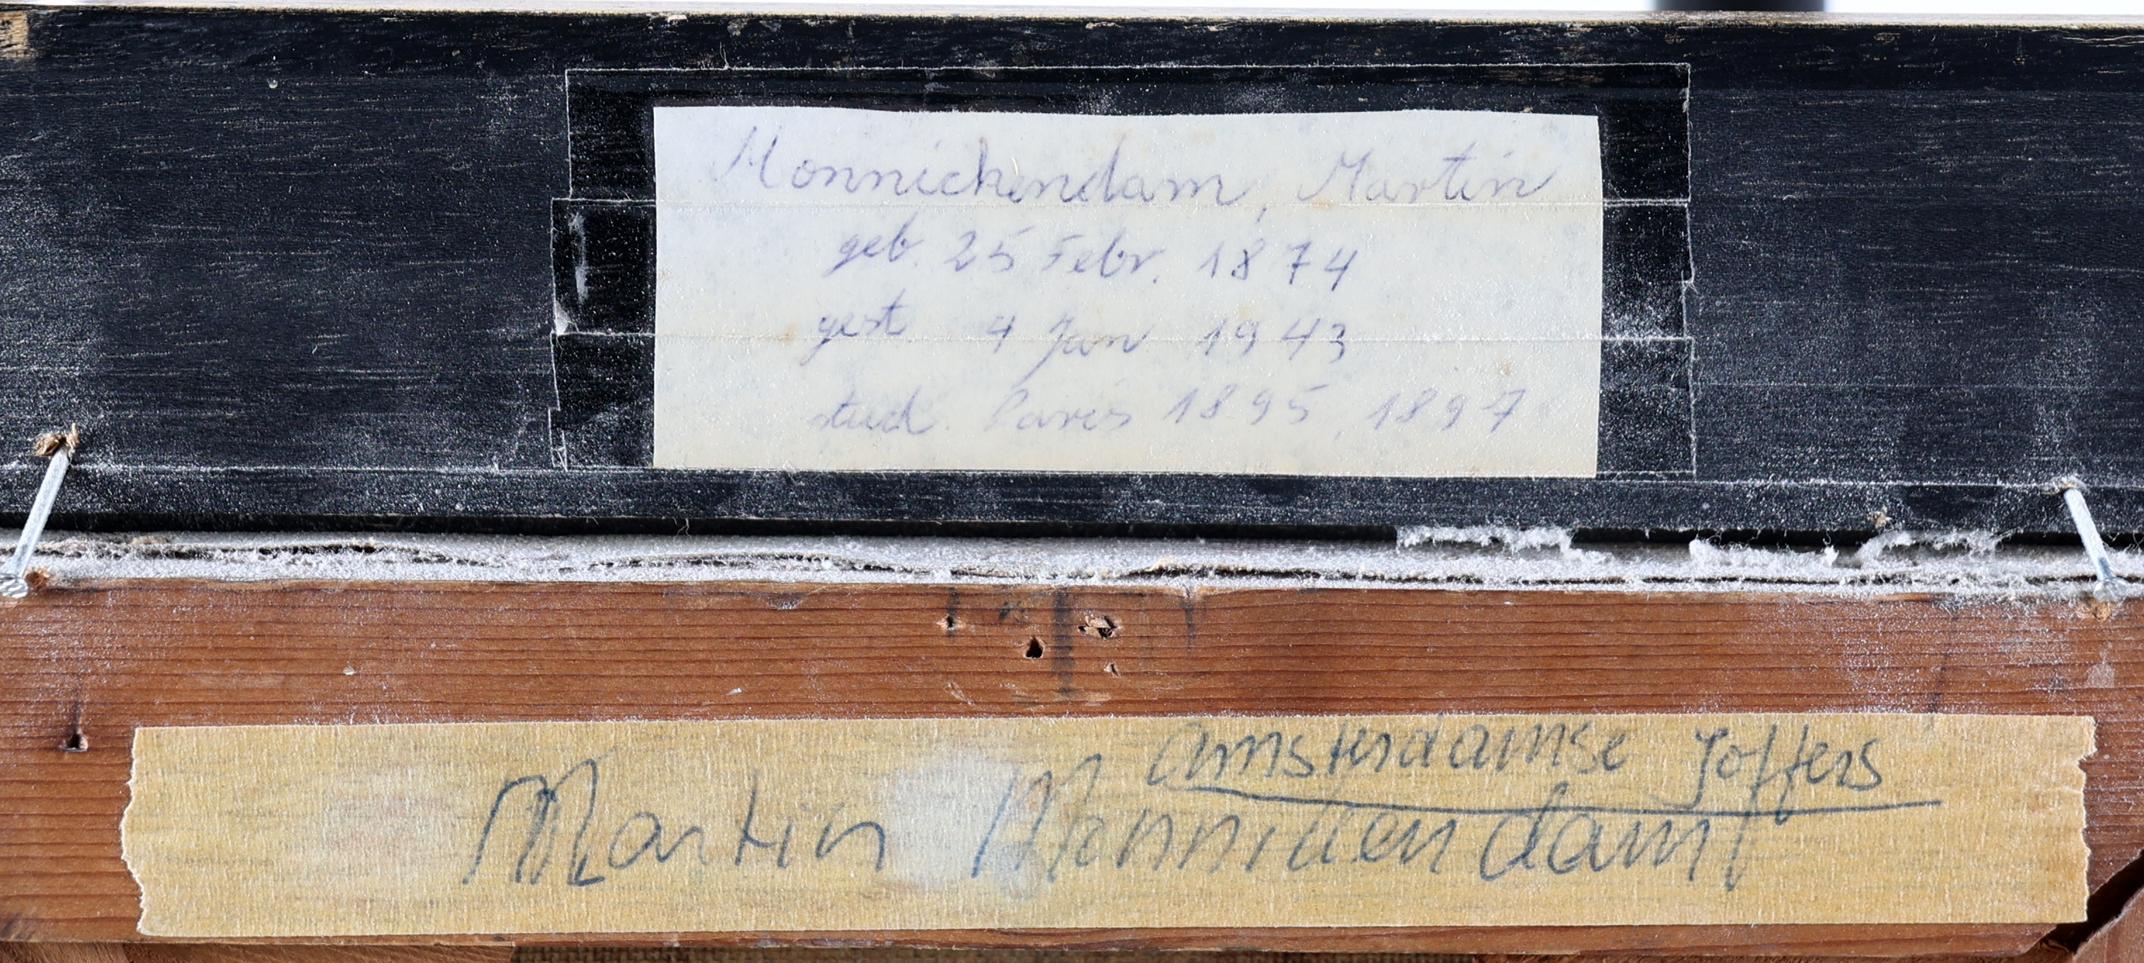 Monnickendam, Martin
geb. 25 Febr. 1874
gest. 4 Jan 1943
stud. Paris 1895, 1897
Amsterdamse Joffers
Martin Monnickendam